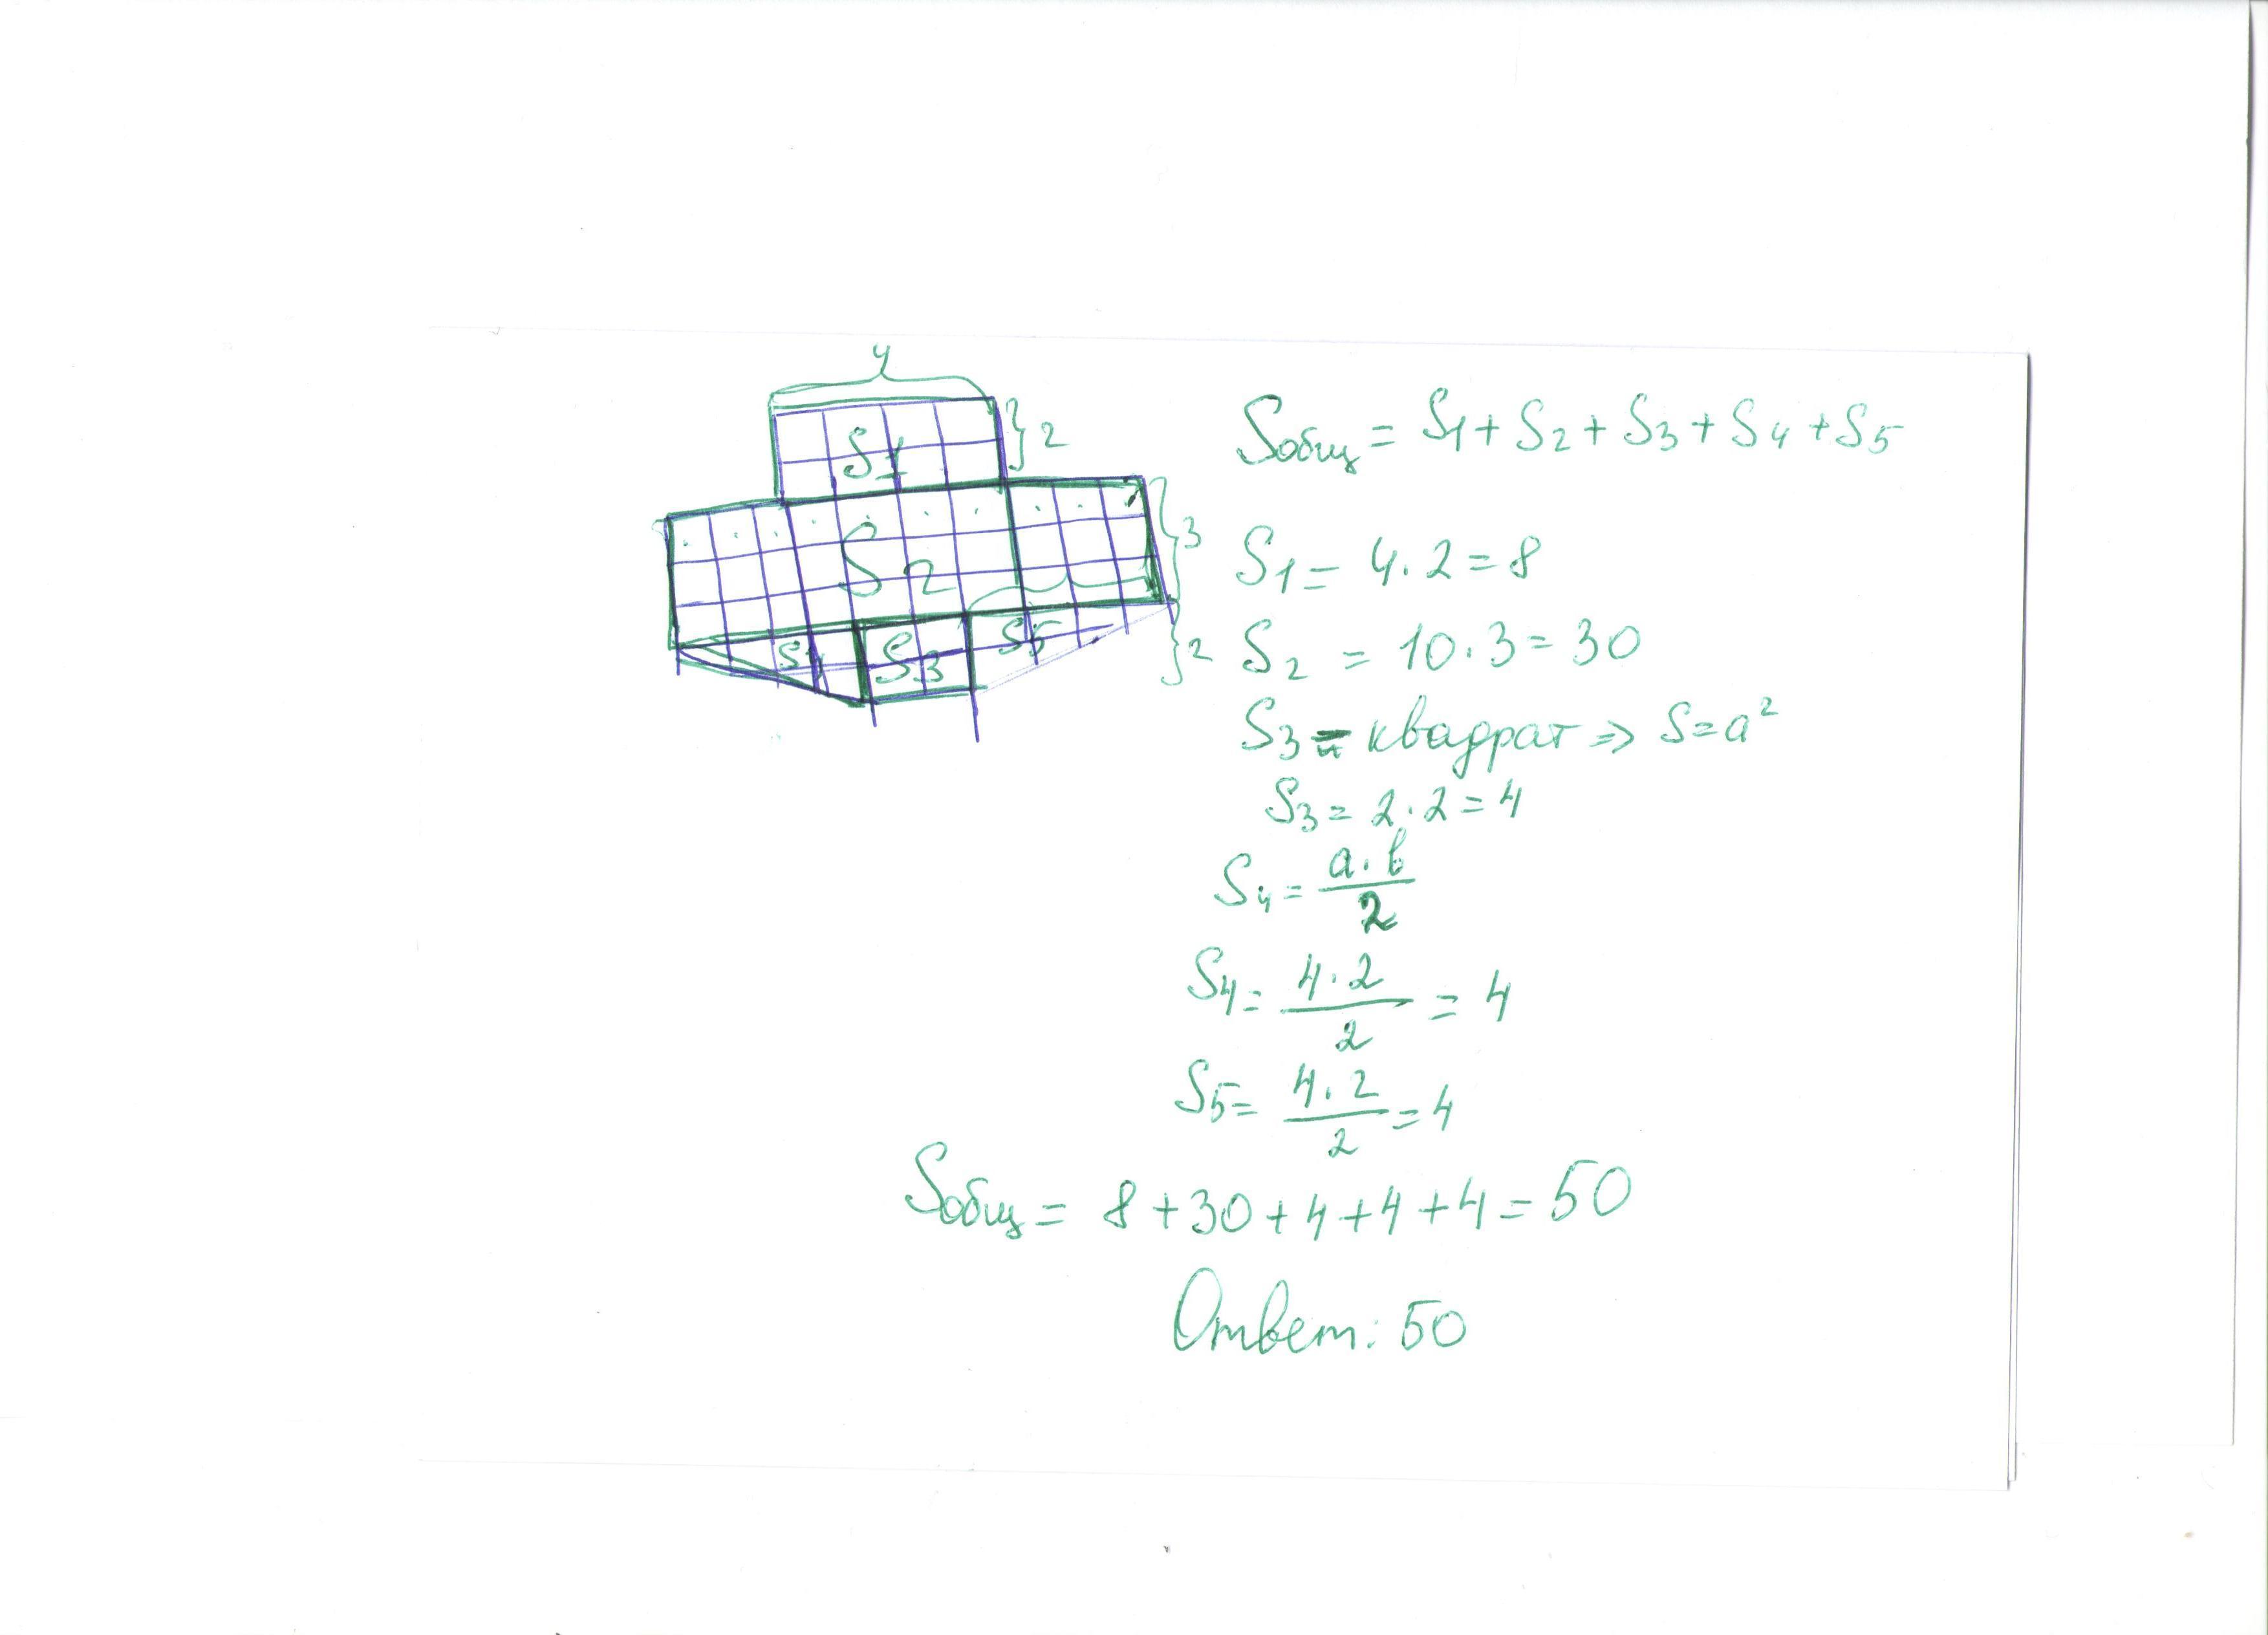 4
S1
} 2
S2
} 3
S4 S3 S5
} 2
Sобщ = S1 + S2 + S3 + S4 + S5
S1 = 4 · 2 = 8
S2 = 10 · 3 = 30
S3 – квадрат => S = a²
S3 = 2 · 2 = 4
S4 = a · b / 2
S4 = 4 · 2 / 2 = 4
S5 = 4 · 2 / 2 = 4
Sобщ = 8 + 30 + 4 + 4 + 4 = 50
Ответ: 50